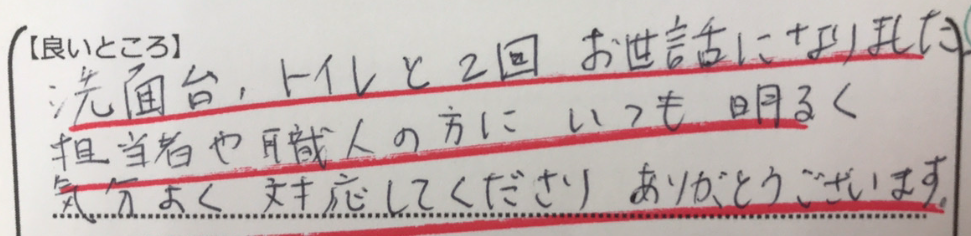 【良いところ】
洗面台、トイレと2回 お世話になりました
担当者や職人の方に いつも 明るく
気分よく 対応してくださり ありがとうございます。